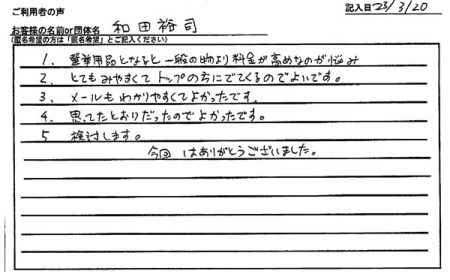 ご利用者の声
記入日23/3/20
お客様の名前or団体名 和田裕司
(匿名希望の方は「匿名希望」とご記入ください)
1、選挙用品となると一般の物より料金が高めなのが悩み
2、とてもみやすくてトップの方にでてくるのでよいです。
3、メールもわかりやすくてよかったです。
4、思てたとおりだったのでよかったです。
5 検討します。
今回 はありがとうございました。